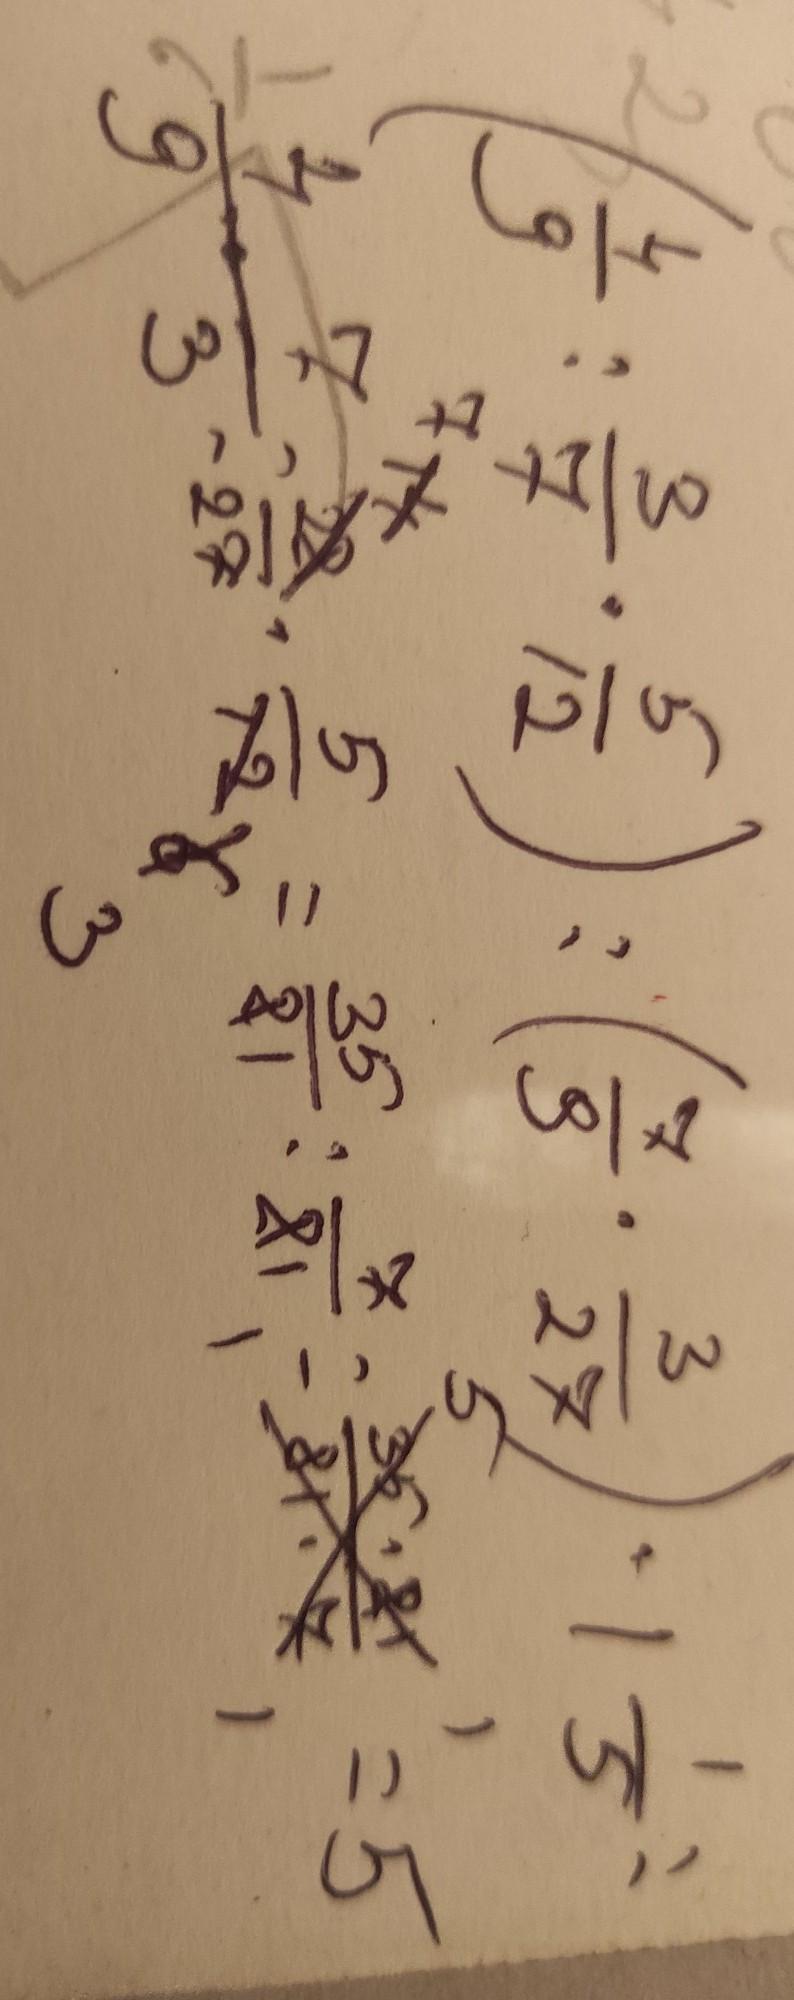 (4/9 : 3/7 · 5/12) : (7/9 · 3/27) · 1 1/5 =
4 · 7 / 9 · 3 = 28/27 · 5/12 = 35/81 : 7/81 = 35 · 81 / 81 · 7 = 5